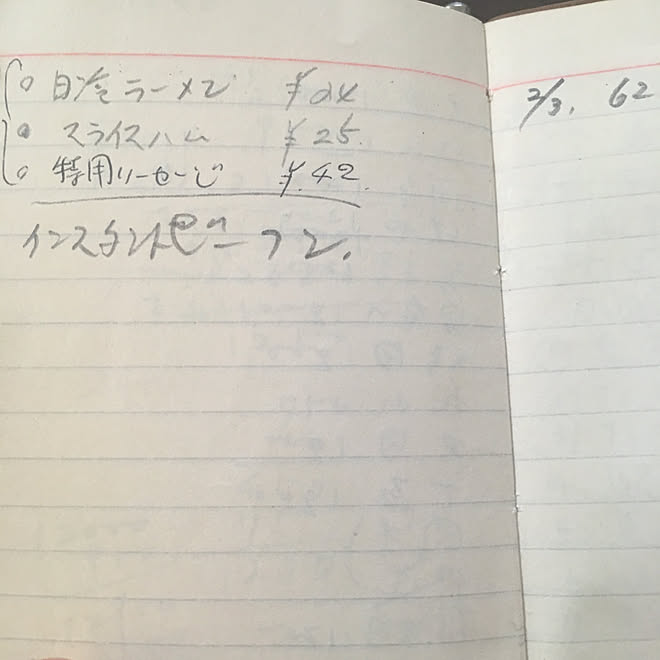 ○ 日冷ラーメン ¥24
○ スライスハム ¥25.
○ 特用ソーセージ ¥.42.
インスタントビーフン.
2/3. 62